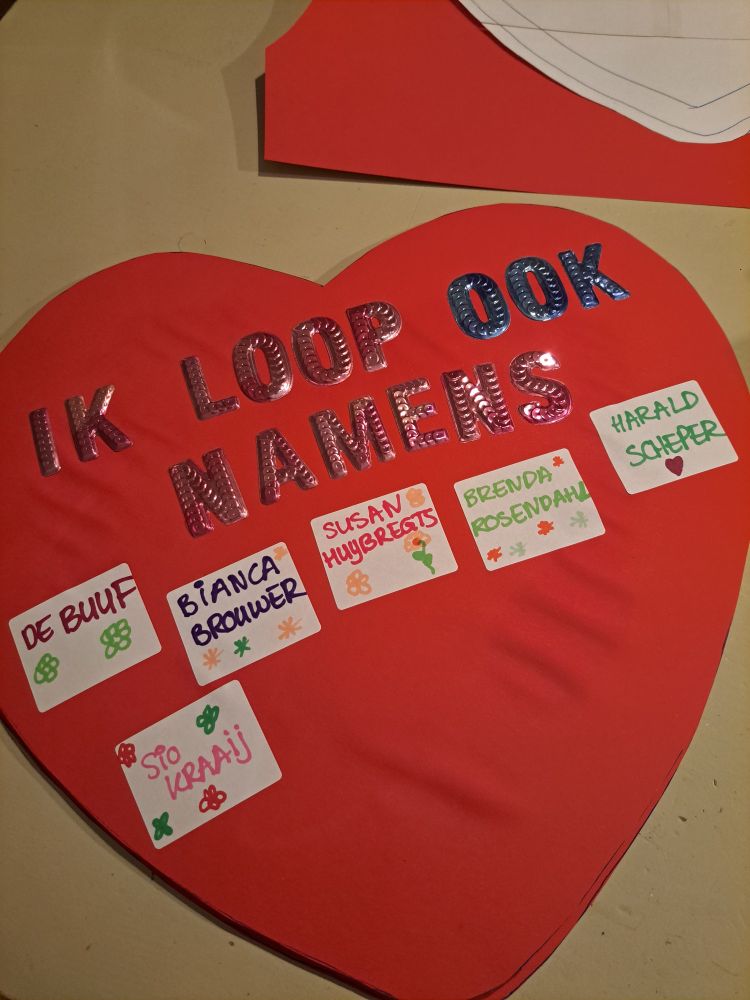 IK LOOP OOK
NAMENS
DE BUUF
BIANCA
BROUWER
SUSAN
HUYBREGTS
BRENDA
ROSENDAHL
HARALD
SCHEPER
SIO
KRAAIJ